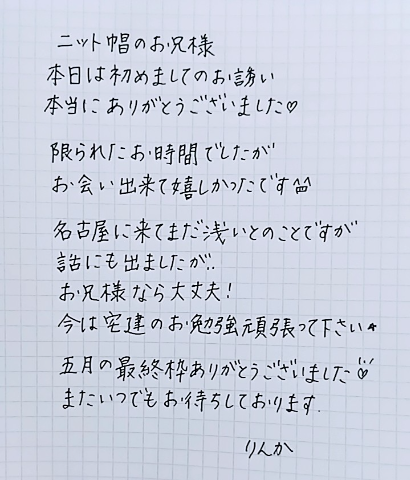 ニット帽のお兄様
本日は初めましてのお誘い
本当にありがとうございました♡
限られたお時間でしたが
お会い出来て嬉しかったです^^
名古屋に来てまだ浅いとのことですが
話にも出ましたが!!
お兄様なら大丈夫!
今は宅建のお勉強頑張って下さい★
五月の最終枠ありがとうございました♡
またいつでもお待ちしております.
りんか